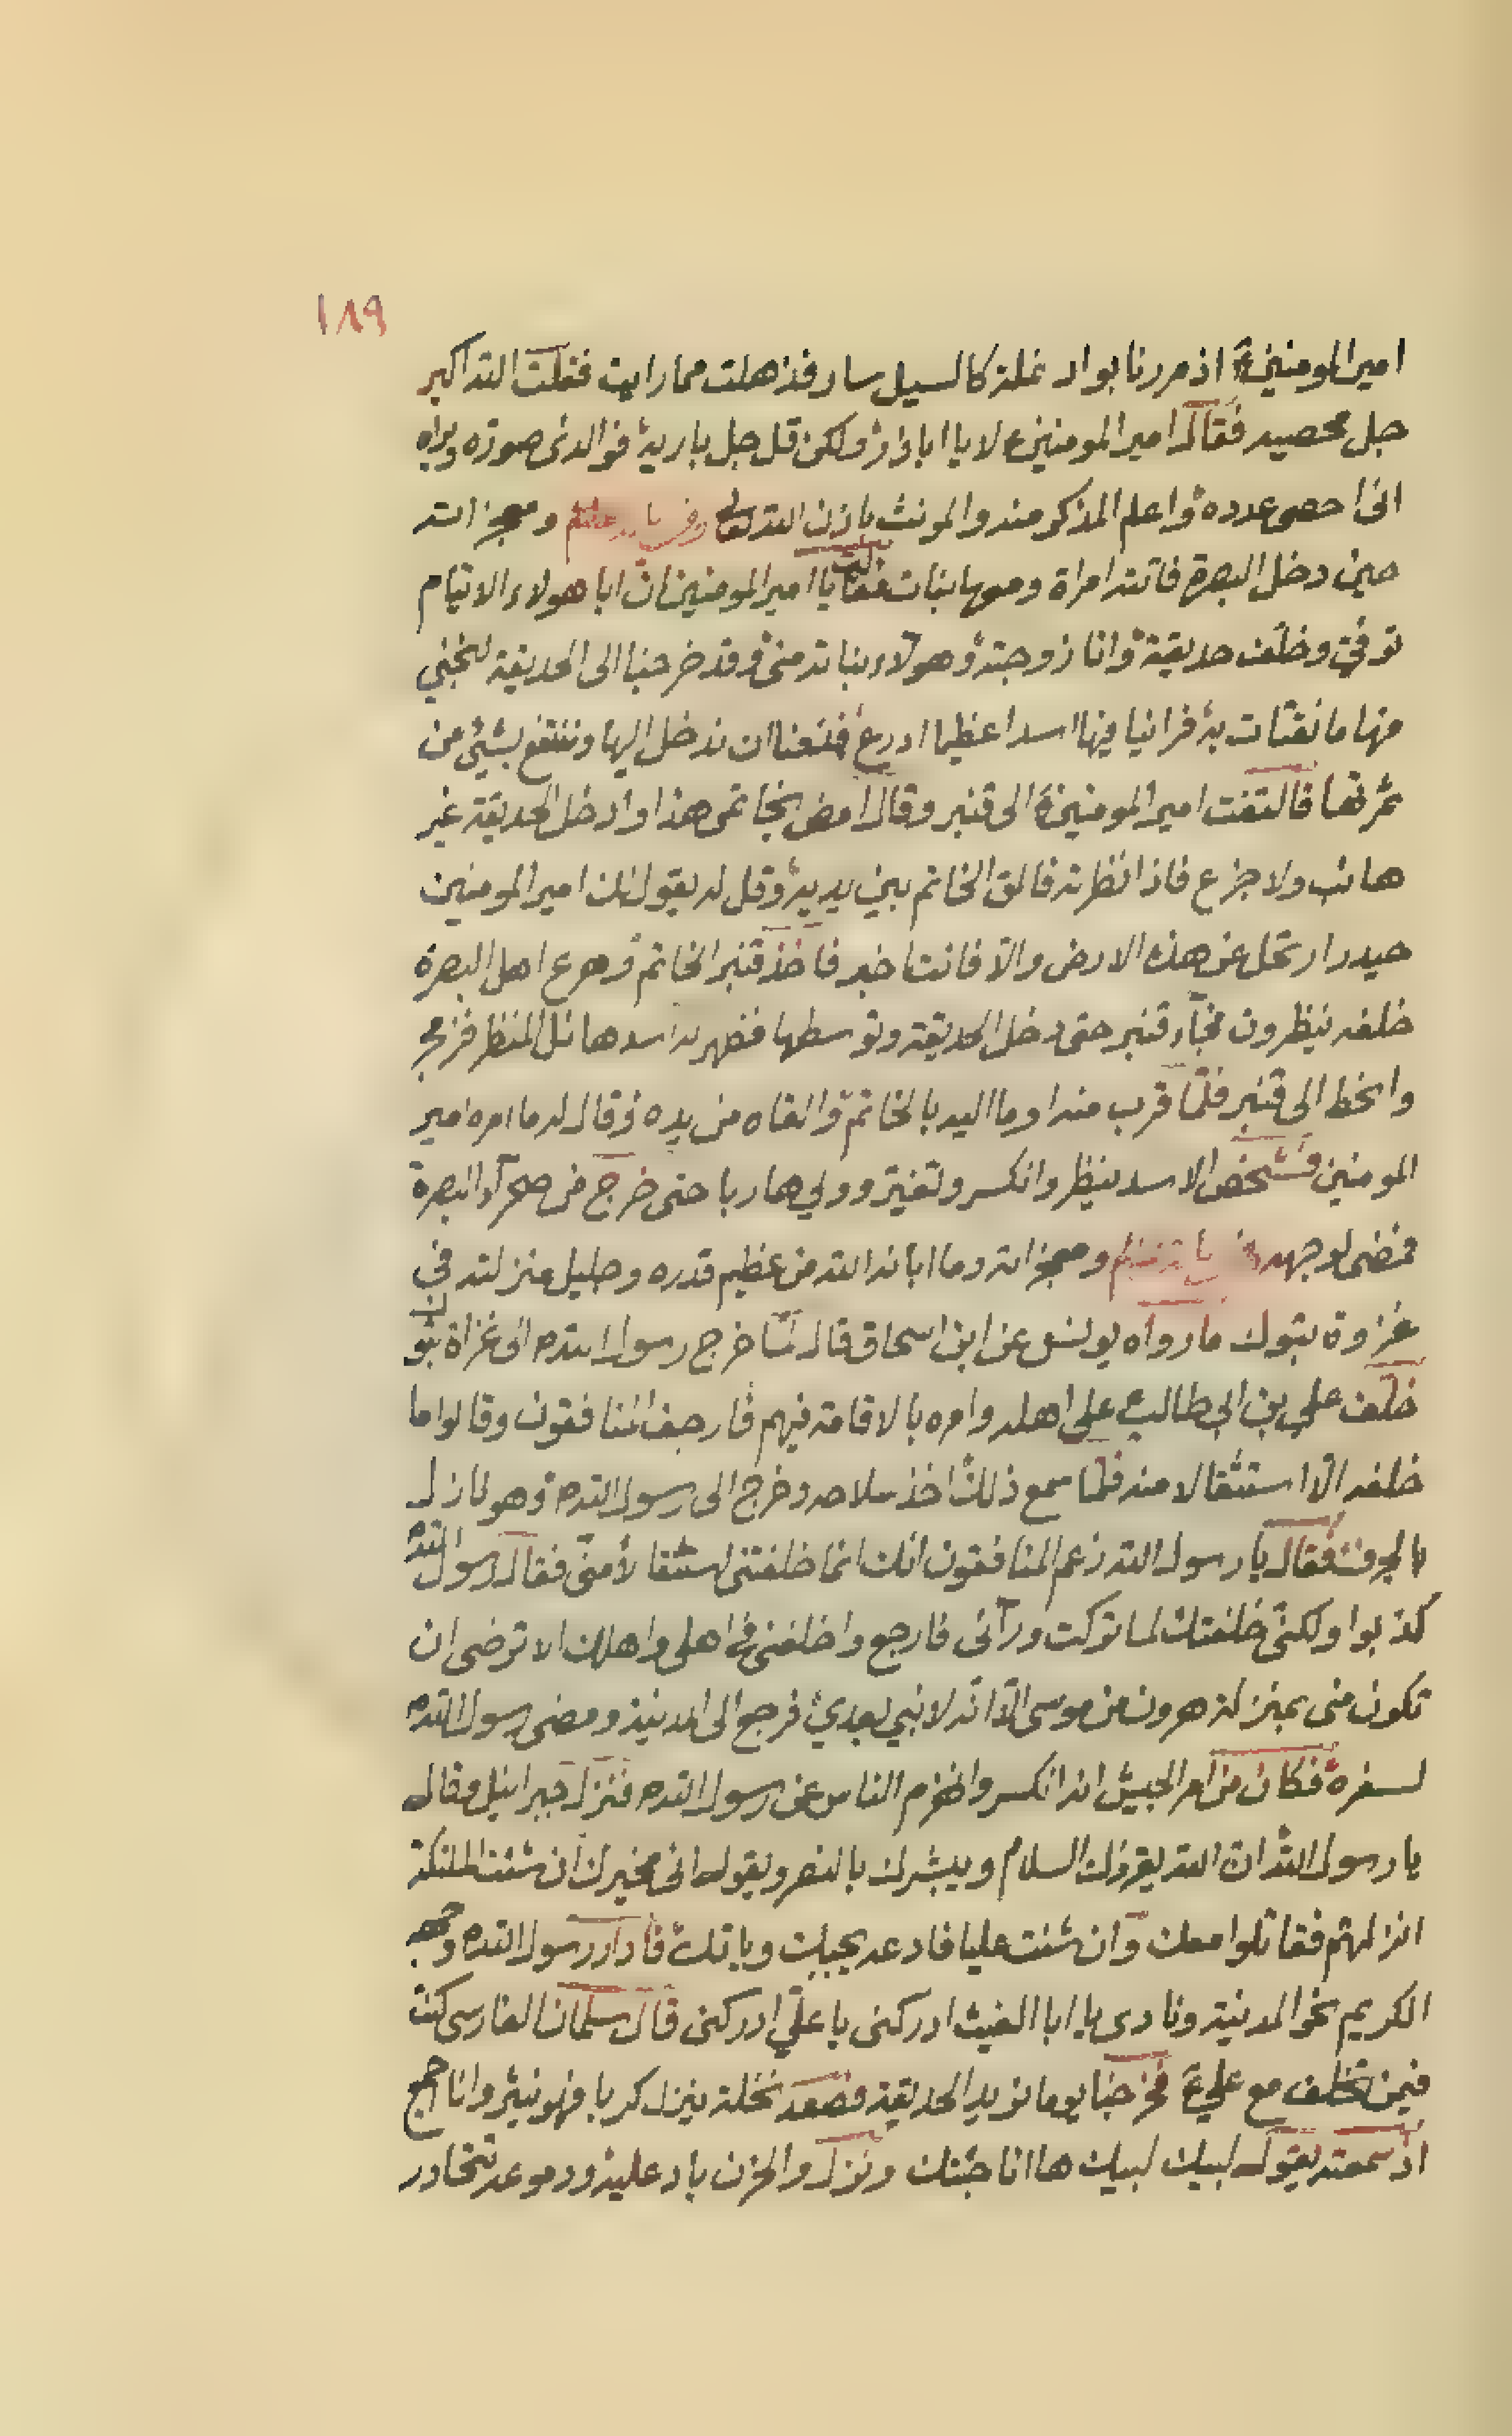 ١٨٩
امير المومنين ع اذ مررنا بواد نمله كالسيل سار فذهلت مما رايت فقلت الله اكبر
جل محصيه فقال امير المومنين ع لا يا اباذر ولكن قل جل باريه فوالذى صوره وبراه
انى احصى عدده واعلم المذكر منه والمونث باذن الله تعالى ومعجزاته
حين دخل البصرة فاتته امراة ومعها بنات فقالت يا امير المومنين ان ابا هولاء الايتام
توفى وخلف حديقة وانا زوجته وهولاء بناته منى وقد خرجنا الى الحديقة لنجني
منها ما نقتات به فراينا فيها اسدا عظيما ادرع فمنعنا ان ندخل اليها وننتفع بشيئ من
ثمرتها فالتفت امير المومنين ع الى قنبر وقال امض بخاتمى هذا وادخل الحديقة غير
هائب ولا جزع فاذا نظرته فالق الخاتم بين يديه وقل له يقول لك امير المومنين
حيدر ارتحل عن هذه الارض والا فانت اخبر فاخذ قنبر الخاتم وهرع اهل البصرة
خلفه ينظرون فجاء قنبر حتى دخل الحديقة وتوسطها فظهر له اسد هائل المنظر فزمجر
وانحط الى قنبر فلما قرب منه اوما اليه بالخاتم والقاه من يده وقال له ما امره امير
المومنين فشخص الاسد ينظر وانكسر وتغير وولي هاربا حتى خرج من صحرآء البصرة
فمضى لوجهه ومعجزاته وما ابانه الله من عظيم قدره وجليل منزلته في
غزوة بتوك ما رواه يونس عن ابن اسحاق قال لما خرج رسول الله ص الى غزاة بتوك
خلف علي بن ابي طالب ع على اهله وامره بالاقامة فيهم فارجف المنافقون وقالوا ما
خلفه الا استثقالا منه فلما سمع ذلك اخذ سلاحه وخرج الى رسول الله ص وهو نازل
بالجرف فقال يا رسول الله زعم المنافقون انك انما خلفتنى استثقالا منى فقال رسول الله
كذبوا ولكنى خلفتك لما تركت ورآئى فارجع واخلفنى في اهلى واهلك الا ترضى ان
تكون منى بمنزلة هرون من موسى الا انه لا نبي بعدي فرجع الى المدينة ومضى رسول الله ص
لسفره فكان من امر الجيش انه انكسر وانهزم الناس عن رسول الله ص فنزل جبرائيل وقال
يا رسول الله ان الله يقرئك السلام ويبشرك بالنصر ويقول انى مخيرك ان شئت الملئكة
انزلهم فقاتلوا معك وان شئت عليا فادعه يجيبك وياتك فادار رسول الله ص وجهه
الكريم نحو المدينة ونادى يا ابا الغيث ادركنى يا على ادركنى قال سلمان الفارسى كنت
فيمن تخلف مع علي ع فخرجنا يوما نريد الحديقة فصعد نخلة ينزل كربا فهو ينثر وانا اجمع
اذ سمعته يقول لبيك لبيك ها انا جئتك ونزل والحزن باد عليه ودموعه تتحادر